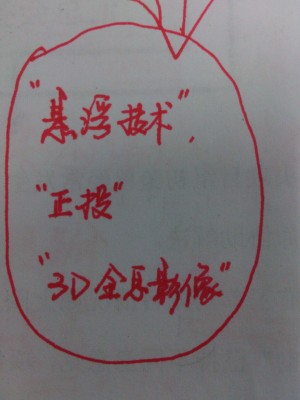 "悬浮技术",
"正投"
"3D全息影像"